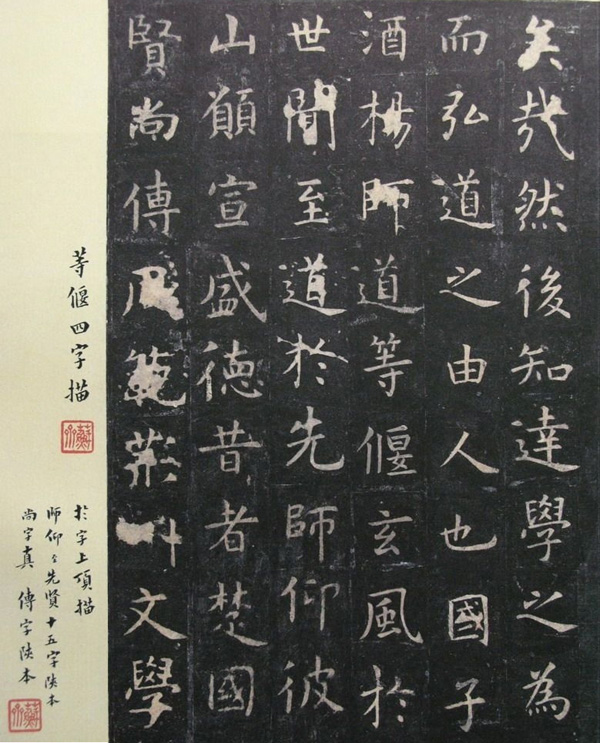 矣哉然後知達學之為
而弘道之由人也國子
酒楊師道等偃玄風於
世聞至道於先師仰彼
山願宣盛德昔者楚國
賢尚傳風範荊州文學
等偃四字描
於字上項描
師仰至先賢十五字陝本
尚字真 傳字陝本